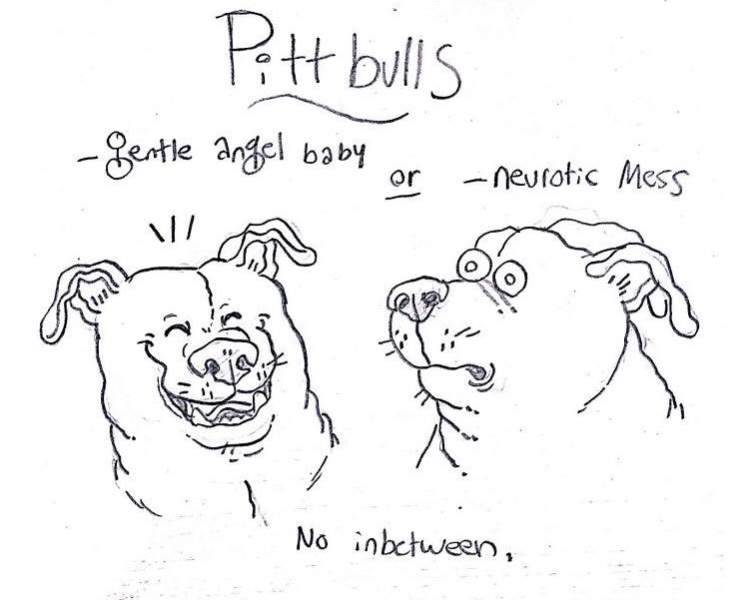 Pitt bulls
- gentle angel baby
or
- neurotic Mess
No inbetween.